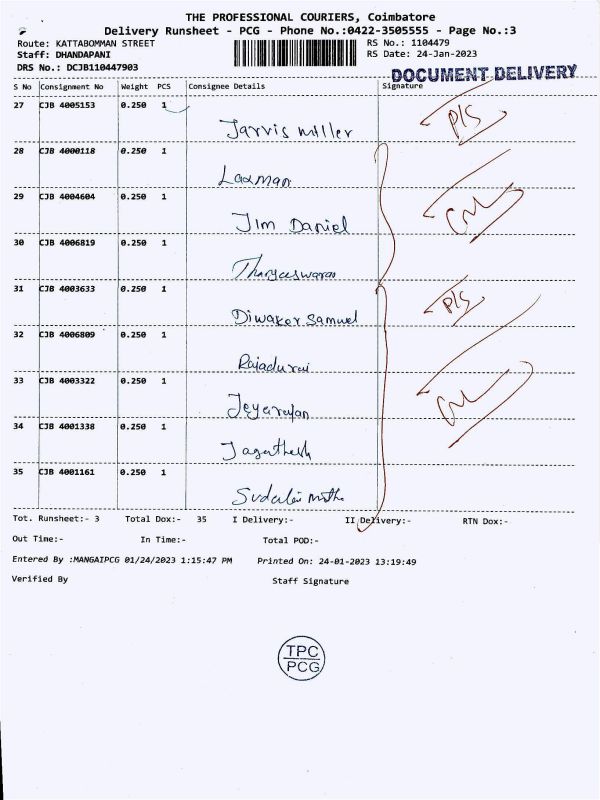 THE PROFESSIONAL COURIERS, Coimbatore
Delivery Runsheet - PCG - Phone No.:0422-3505555 - Page No.:3
Route: KATTABOMMAN STREET RS No.: 1104479
Staff: DHANDAPANI RS Date: 24-Jan-2023
DRS No.: DCJB110447903
DOCUMENT DELIVERY
S No Consignment No Weight PCS Consignee Details Signature
27 CJB 4005153 0.250 1
Jarvis Miller P/S
28 CJB 4000118 0.250 1
Laxman
29 CJB 4004604 0.250 1
Jim Daniel
30 CJB 4006819 0.250 1
31 CJB 4003633 0.250 1
Diwaker Samuel P/S
32 CJB 4006809 0.250 1
Rajadurai
33 CJB 4003322 0.250 1
Jeyarajan
34 CJB 4001338 0.250 1
Jagathesh
35 CJB 4001161 0.250 1
Tot. Runsheet:- 3 Total Dox:- 35 I Delivery:- II Delivery:- RTN Dox:-
Out Time:- In Time:- Total POD:-
Entered By :MANGAIPCG 01/24/2023 1:15:47 PM Printed On: 24-01-2023 13:19:49
Verified By Staff Signature
TPC
PCG